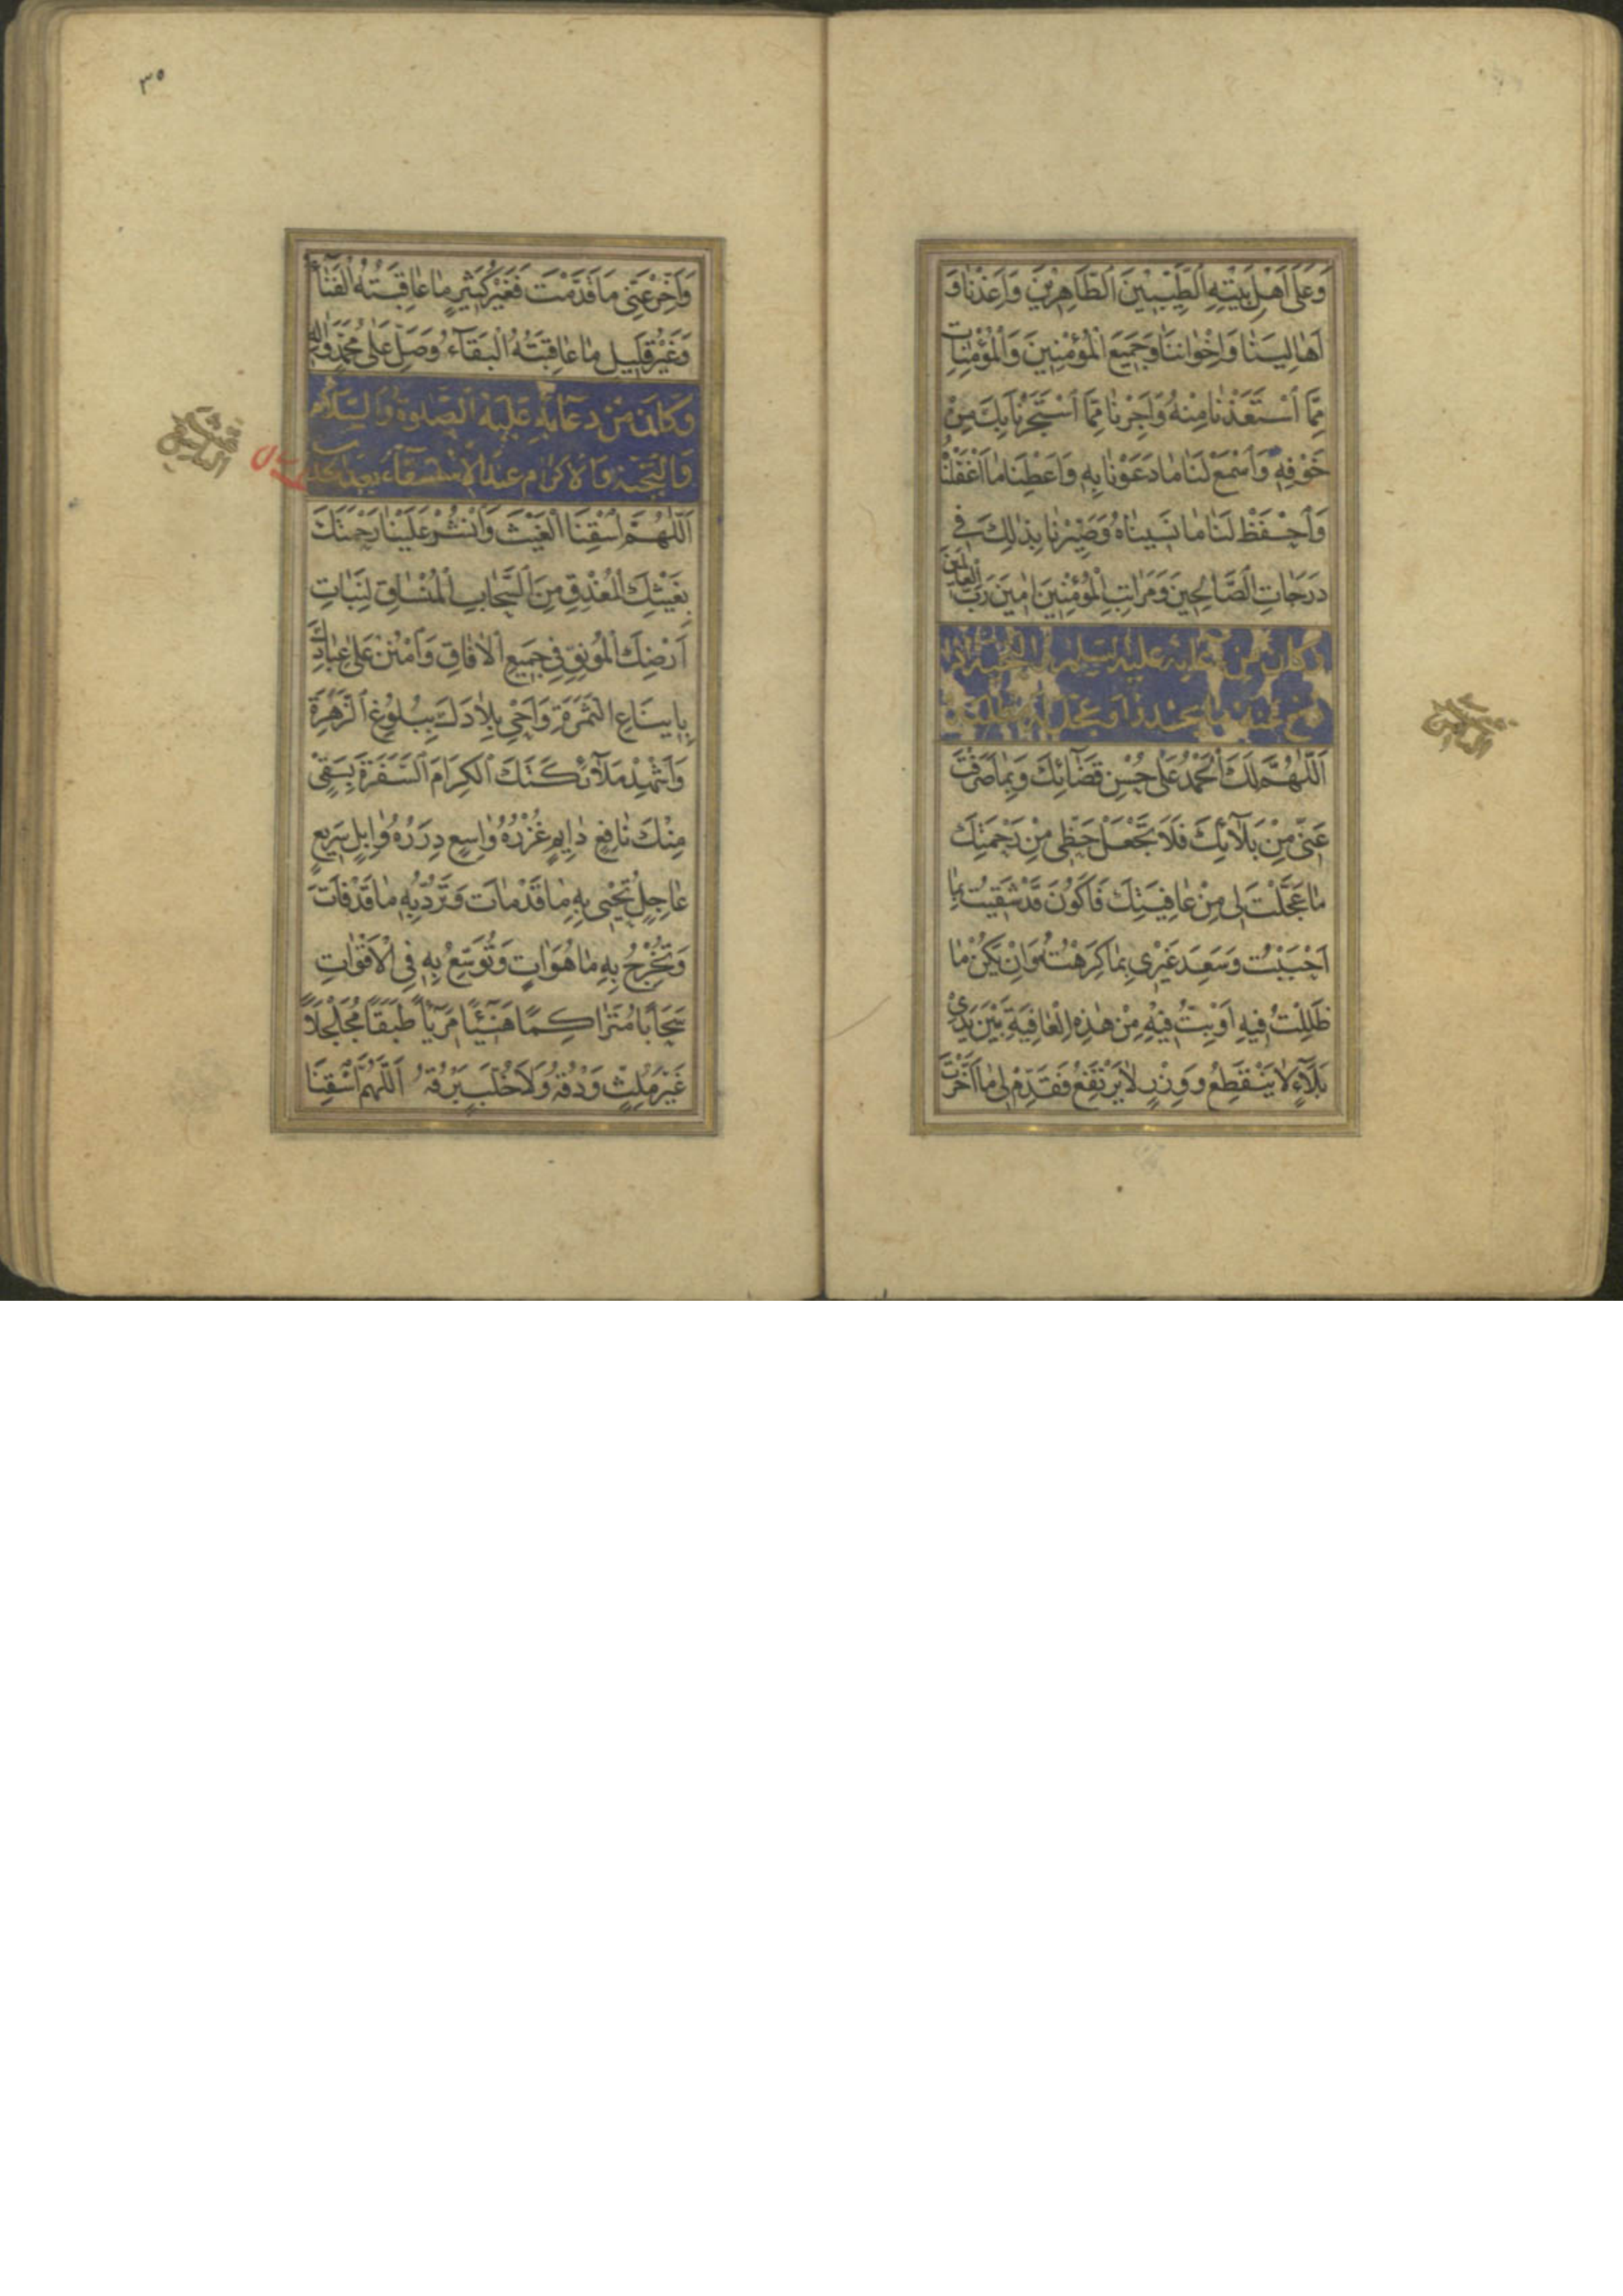 وَعَلَىٰ اَهْلِ بَيْتِهِ الطَّيِّبِينَ الطَّاهِرِينَ وَاَعِذْنَا وَ
اَهَالِيَنَا وَاِخْوَانَنَا وَجَمِيعَ الْمُؤْمِنِينَ وَالْمُؤْمِنَاتِ
مِمَّا اسْتَعَذْنَا مِنْهُ وَاَجِرْنَا مِمَّا اسْتَجَرْنَا بِكَ مِنْ
خَوْفِهِ وَاسْمَعْ لَنَا مَا دَعَوْنَا بِهِ وَاَعْطِنَا مَا اَغْفَلْنَا
وَاحْفَظْ لَنَا مَا نَسِينَاهُ وَصَيِّرْنَا بِذٰلِكَ فِي
دَرَجَاتِ الصَّالِحِينَ وَمَرَاتِبِ الْمُؤْمِنِينَ اٰمِينَ رَبَّ الْعَالَمِينَ
وكان من دعائه عليه
اَللّٰهُمَّ لَكَ الْحَمْدُ عَلَىٰ حُسْنِ قَضَائِكَ وَبِمَا صَرَفْتَ
عَنِّي مِنْ بَلَائِكَ فَلَا تَجْعَلْ حَظِّي مِنْ رَحْمَتِكَ
مَا عَجَّلْتَ لِي مِنْ عَافِيَتِكَ فَاَكُونَ قَدْ شَقِيتُ بِمَا
اَحْبَبْتُ وَسَعِدَ غَيْرِي بِمَا كَرِهْتُ وَاِنْ يَكُنْ مَا
ظَلِلْتُ فِيهِ اَوْ بِتُّ فِيهِ مِنْ هٰذِهِ الْعَافِيَةِ بَيْنَ يَدَيْ
بَلَاءٍ لَا يَنْقَطِعُ وَوِزْرٍ لَا يَرْتَفِعُ فَقَدِّمْ لِي مَا اَخَّرْتَ
٣٥
وَاَخِّرْ عَنِّي مَا قَدَّمْتَ فَغَيْرُ كَثِيرٍ مَا عَاقِبَتُهُ الْفَنَاءُ
وَغَيْرُ قَلِيلٍ مَا عَاقِبَتُهُ الْبَقَاءُ وَصَلِّ عَلَىٰ مُحَمَّدٍ وَاٰلِهِ
وَكَانَ مِنْ دُعَائِهِ عَلَيْهِ الصَّلٰوةُ وَالسَّلَامُ
وَالتَّحِيَّةُ وَالْاِكْرَامُ عِنْدَ الْاِسْتِسْقَاءِ بَعْدَ الْجَدْبِ
اَللّٰهُمَّ اسْقِنَا الْغَيْثَ وَانْشُرْ عَلَيْنَا رَحْمَتَكَ
بِغَيْثِكَ الْمُغْدِقِ مِنَ السَّحَابِ الْمُنْسَاقِ لِنَبَاتِ
اَرْضِكَ الْمُونِقِ فِي جَمِيعِ الْاٰفَاقِ وَامْنُنْ عَلَىٰ عِبَادِكَ
بِاِينَاعِ الثَّمَرَةِ وَاَحْيِ بِلَادَكَ بِبُلُوغِ الزَّهَرَةِ
وَاَشْهِدْ مَلَائِكَتَكَ الْكِرَامَ السَّفَرَةَ بِسَقْيٍ
مِنْكَ نَافِعٍ دَائِمٍ غُزْرُهُ وَاسِعٍ دِرَرُهُ وَابِلٍ سَرِيعٍ
عَاجِلٍ تُحْيِي بِهِ مَا قَدْ مَاتَ وَتَرُدُّ بِهِ مَا قَدْ فَاتَ
وَتُخْرِجُ بِهِ مَا هُوَ اٰتٍ وَتُوَسِّعُ بِهِ فِي الْاَقْوَاتِ
سَحَابًا مُتَرَاكِمًا هَنِيئًا مَرِيئًا طَبَقًا مُجَلْجَلًا
غَيْرَ مُلِثٍّ وَدْقُهُ وَلَا خُلَّبٍ بَرْقُهُ اَللّٰهُمَّ اسْقِنَا